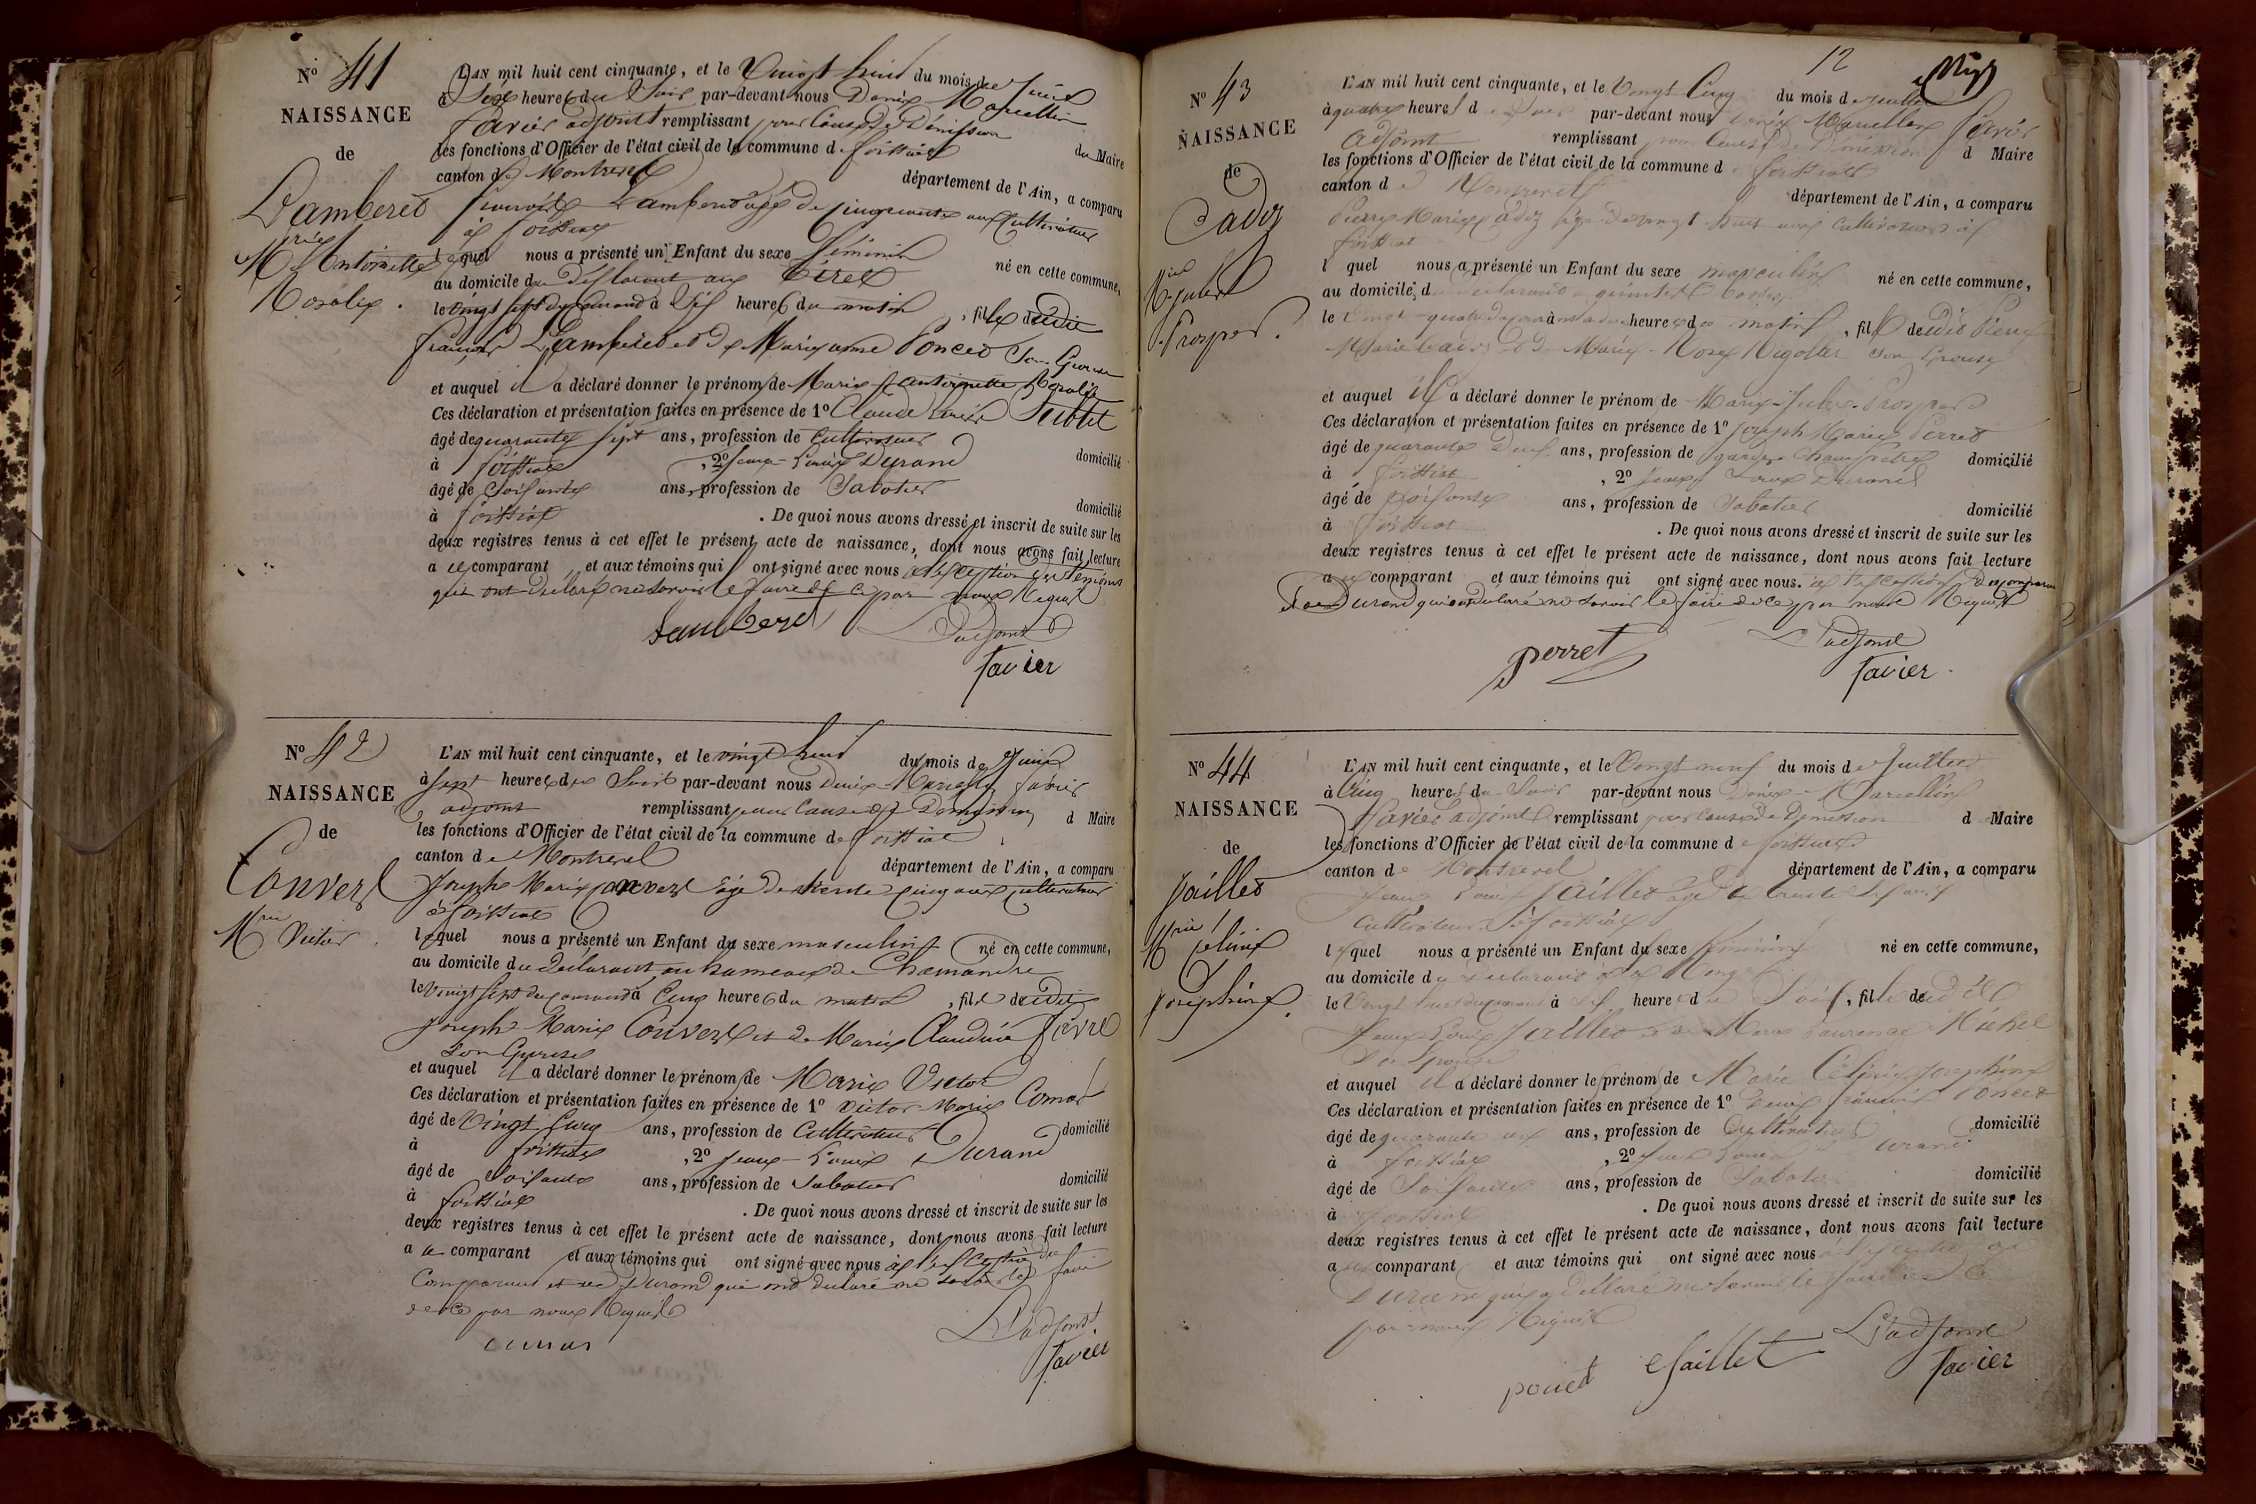 N° 41
NAISSANCE
de
Lamberet
Mrie Antoinette
Rosalie.
L'AN mil huit cent cinquante, et le Vingt huit du mois de Juin
à Six heures du Soir par-devant nous Denis Marcellin
favier adjoint remplissant pour Cause de Démission
les fonctions d'Officier de l'état civil de la commune de foissiat du Maire
canton de Montrevel département de l'Ain, a comparu
françois Lamberet âgé de cinquante ans Cultivateur
à foissiat
lequel nous a présenté un Enfant du sexe féminin né en cette commune,
au domicile du déclarant aux
le vingt sept du courant à Six heures du matin, fille dudit
françois Lamberet et de Marie anne Poncet Son Epouse
et auquel il a déclaré donner le prénom de Marie antoinette Rosalie
Ces déclaration et présentation faites en présence de 1° Claude Louis
âgé de quarante sept ans, profession de Cultivateur domicilié
à foissiat, 2° Jean-Louis Durand
âgé de Soixante ans, profession de Sabotier domicilié
à foissiat. De quoi nous avons dressé et inscrit de suite sur les
deux registres tenus à cet effet le présent acte de naissance, dont nous avons fait lecture
a ce comparant et aux témoins qui ont signé avec nous à l'exception des témoins
qui ont déclaré ne savoir le faire de ce par nous Requis
Lamberet L'adjoint
favier
N° 42
NAISSANCE
de
Convert
Mrie Victor
L'AN mil huit cent cinquante, et le vingt huit du mois de Juin
à Sept heures du Soir par-devant nous Denis Marcellin favier
adjoint remplissant pour Cause de Démission d Maire
les fonctions d'Officier de l'état civil de la commune de foissiat
canton de Montrevel département de l'Ain, a comparu
Joseph Marie Convert âgé de trente cinq ans cultivateur
à foissiat
lequel nous a présenté un Enfant du sexe masculin né en cette commune,
au domicile du déclarant au hameau de Chamandre
le Vingt sept du courant à Cinq heures du matin, fils dudit
Joseph Marie Convert et de Marie Claudine favre
Son Epouse
et auquel il a déclaré donner le prénom de Marie Victor
Ces déclaration et présentation faites en présence de 1° Victor Marie
âgé de Vingt Cinq ans, profession de Cultivateur domicilié
à foissiat, 2° Jean-Louis Durand
âgé de Soixante ans, profession de Sabotier domicilié
à foissiat. De quoi nous avons dressé et inscrit de suite sur les
deux registres tenus à cet effet le présent acte de naissance, dont nous avons fait lecture
a ce comparant et aux témoins qui ont signé avec nous à l'exception du
Comparant et de Durand qui ont déclaré ne savoir le faire
de ce par nous Requis
L'adjoint
favier
12
N° 43
NAISSANCE
de
Cadoz
Mrie Jules
Prosper.
L'AN mil huit cent cinquante, et le Vingt Cinq du mois de Juillet
à quatre heures du Soir par-devant nous Denis Marcellin favier
adjoint remplissant pour Cause de Démission d Maire
les fonctions d'Officier de l'état civil de la commune de foissiat
canton de Montrevel département de l'Ain, a comparu
Pierre Marie Cadoz âgé de vingt huit ans Cultivateur à
foissiat
lequel nous a présenté un Enfant du sexe masculin né en cette commune,
au domicile du déclarant
le Vingt quatre du courant à heures du matin, fils dudit Pierre
Marie Cadoz et de Marie Rose Rigollet Son Epouse
et auquel il a déclaré donner le prénom de Marie Jules Prosper
Ces déclaration et présentation faites en présence de 1° Joseph Marie Perret
âgé de quarante ans, profession de garde Champêtre domicilié
à foissiat, 2° Jean Louis Durand
âgé de Soixante ans, profession de Sabotier domicilié
à foissiat. De quoi nous avons dressé et inscrit de suite sur les
deux registres tenus à cet effet le présent acte de naissance, dont nous avons fait lecture
a ce comparant et aux témoins qui ont signé avec nous. à l'exception du comparant
et de Durand qui ont déclaré ne savoir le faire de ce par nous Requis
perret L'adjoint
favier
N° 44
NAISSANCE
de
Jaillet
Mrie Céline
Joséphine.
L'AN mil huit cent cinquante, et le Vingt neuf du mois de Juillet
à Cinq heures du Soir par-devant nous Denis Marcellin
favier adjoint remplissant pour Cause de Démission d Maire
les fonctions d'Officier de l'état civil de la commune de foissiat
canton de Montrevel département de l'Ain, a comparu
Jean Louis Jaillet âgé de trente ans
Cultivateur à foissiat
lequel nous a présenté un Enfant du sexe féminin né en cette commune,
au domicile du déclarant
le Vingt du courant à heures du Soir, fille dudit
Jean Louis Jaillet et de Marie Laurence Michel
Son Epouse
et auquel il a déclaré donner le prénom de Marie Céline Joséphine
Ces déclaration et présentation faites en présence de 1° Denis françois Poncet
âgé de quarante ans, profession de Cultivateur domicilié
à foissiat, 2° Jean Louis Durand
âgé de Soixante ans, profession de Sabotier domicilié
à foissiat. De quoi nous avons dressé et inscrit de suite sur les
deux registres tenus à cet effet le présent acte de naissance, dont nous avons fait lecture
a ce comparant et aux témoins qui ont signé avec nous à l'exception de
Durand qui a déclaré ne savoir le faire de ce
par nous Requis
poncet Jaillet L'adjoint
favier